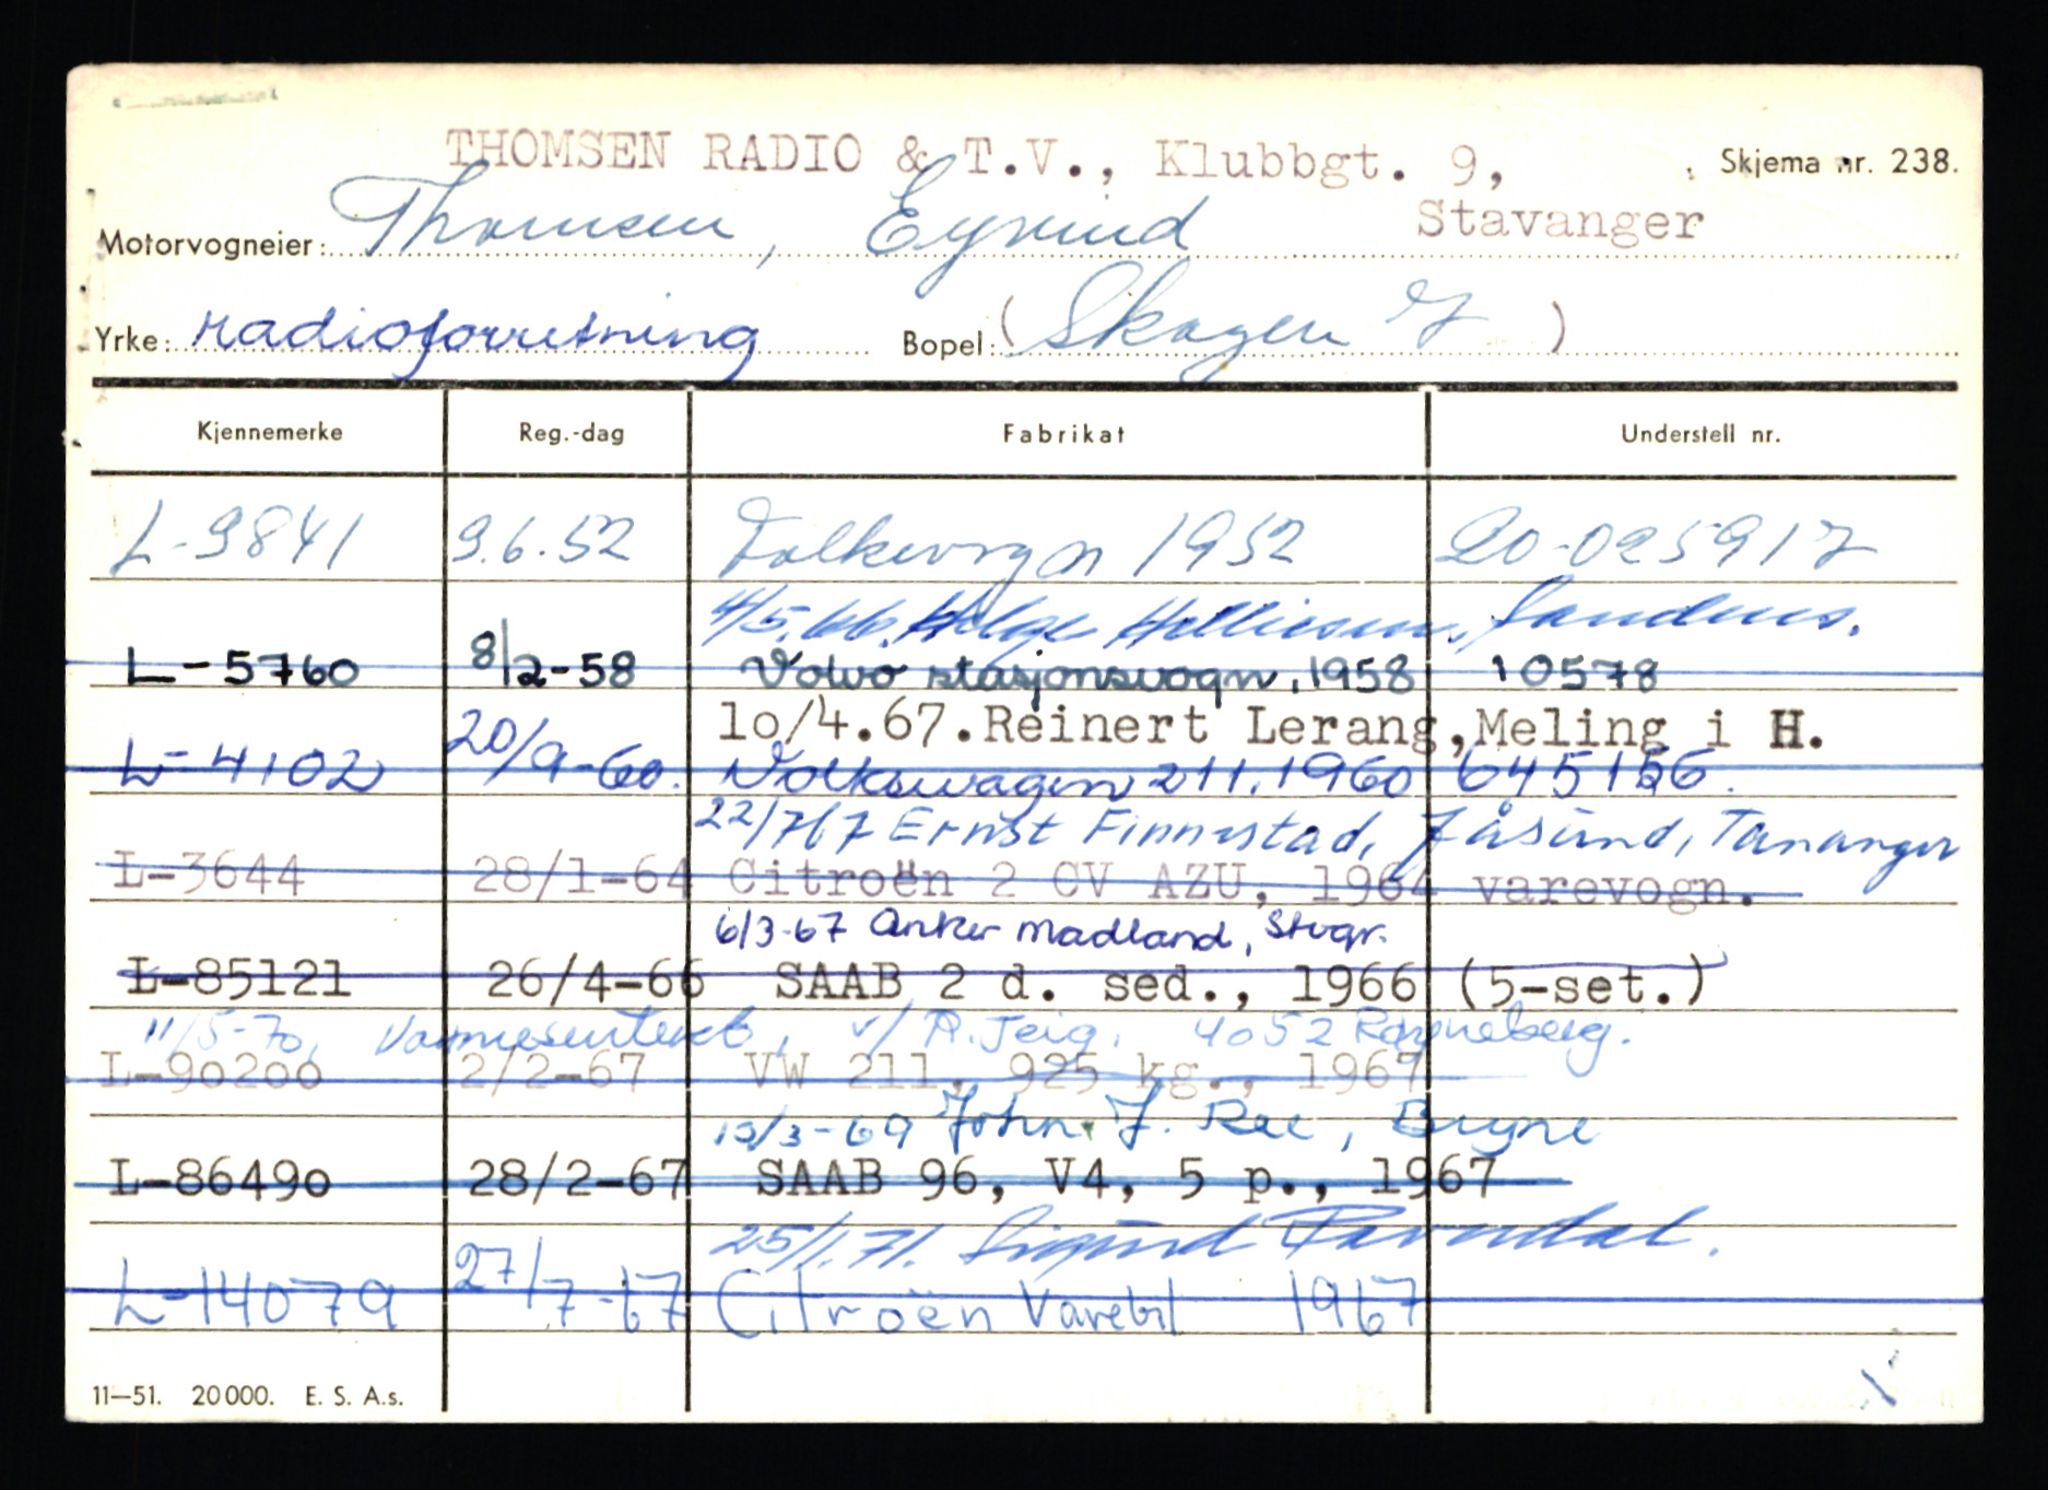 THOMSEN RADIO & T.V., Klubbgt. 9, Skjema nr. 238.
Stavanger
Motorvogneier: Thomsen, Eyvind
Yrke: radioforretning Bopel: (Skagen 7)
Kjennemerke Reg.-dag Fabrikat Understell nr.
L-9841 9.6.52 Folkevogn 1952 20-025917
4/5.66. Helge Helliesen, Sandnes.
L-5760 8/2-58 Volvo stasjonsvogn, 1958 10578
10/4.67. Reinert Lerang, Meling i H.
L-4102 20/9-60. Volkswagen 211, 1960 645156.
22/767 Ernst Finnestad, Jåsund, Tananger
L-3644 28/1-64 Citroën 2 CV AZU, 1964 varevogn.
6/3-67 Anker Madland, Stvgr.
L-85121 26/4-66 SAAB 2 d. sed., 1966 (5-set.)
11/5-70, Varmesenteret, v/ R. Teig, 4052 Røyneberg.
L-90200 2/2-67 VW 211, 925 kg., 1967
/3-69 John. J. Ree, Bryne
L-86490 28/2-67 SAAB 96, V4, 5 p., 1967
25/1.71. Sigurd
L-14079 27/7-67 Citroën Varebil 1967
11—51. 20000. E. S. A.s.